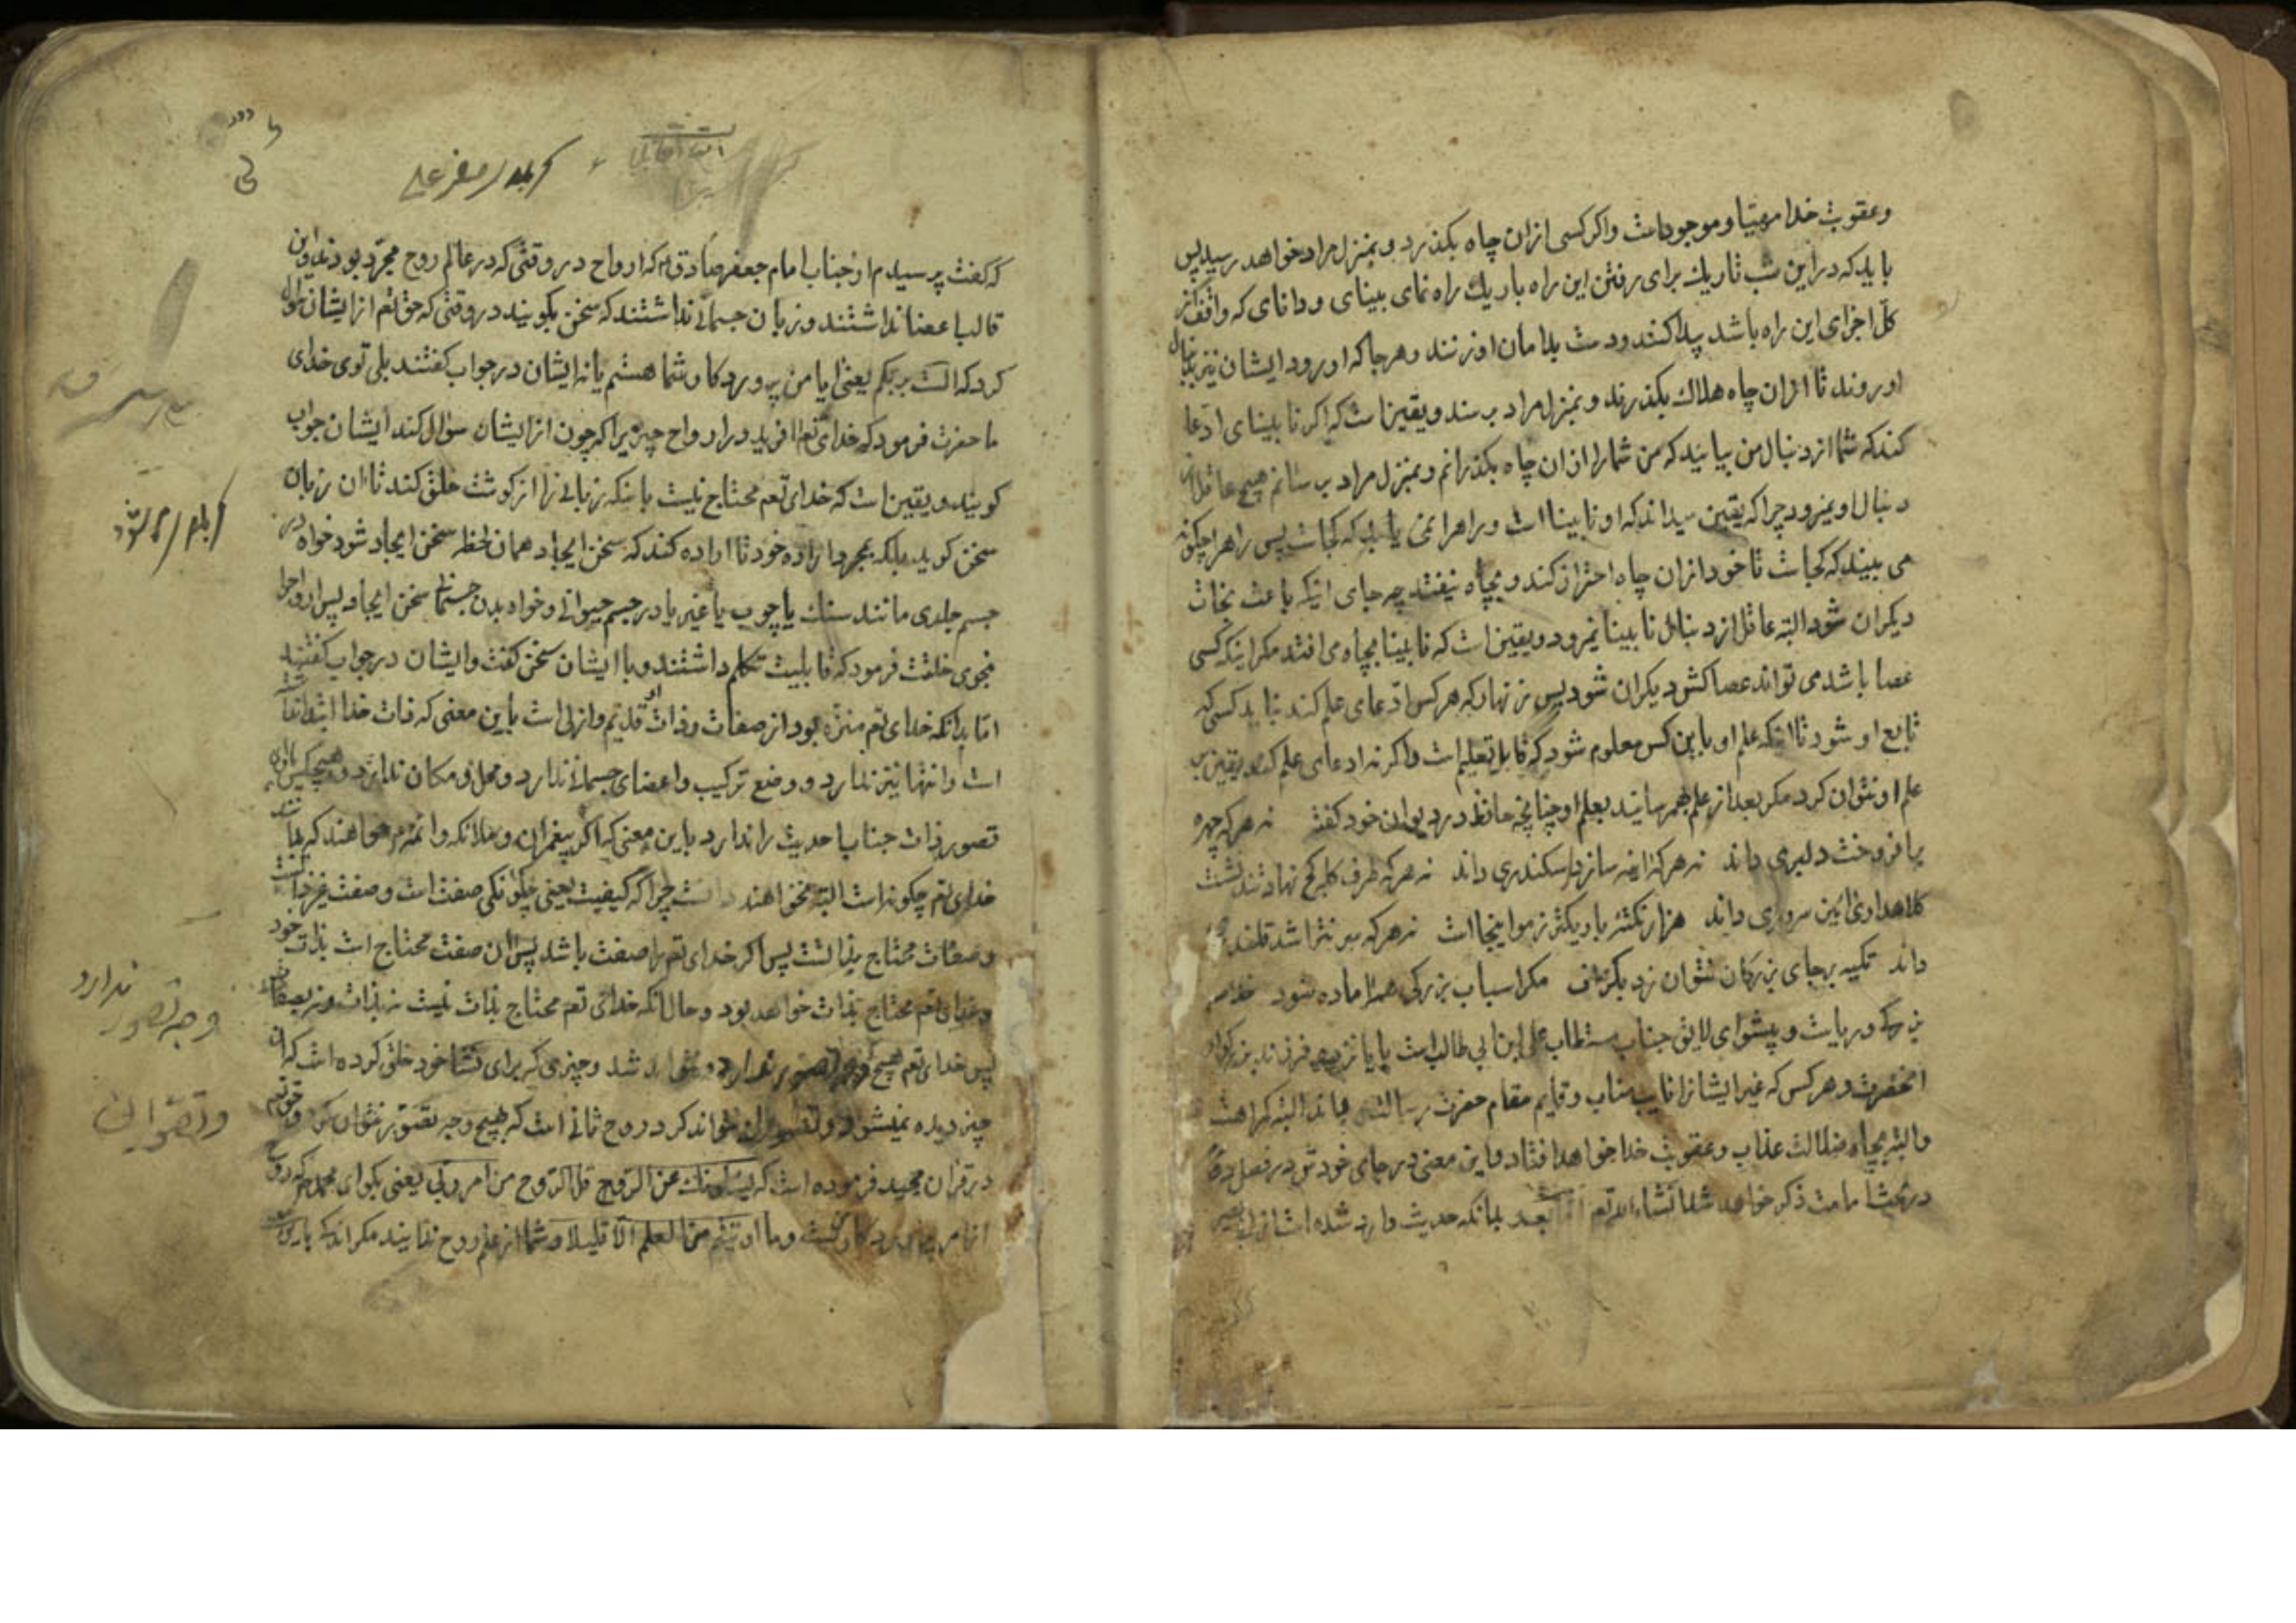 وعقوبت خدا مهیا و موجود است واکر کسی ازان چاه بکذرد و بمنزل مراد خواهد رسید پس
باید که در این شب تاریك برای رفتن این راه باریك راه نمای بینای و دانای که واقف از
کل اجزای این راه باشد پیدا کنند و دست بدامان او زنند و هرجا که او رود ایشان نیز بدنبال
او روند تا ازان چاه هلاك بکذرند و بمنزل مراد برسند و یقین است که اکر نابینای ادعا
کند که شما از دنبال من بیایید که من شما را ازان چاه بکذرانم و بمنزل مراد برسانم هیچ عاقل از
دنبال او نمیرود چرا که یقین میداند که او نابینا است و راه را نمی یابد که کجاست پس راه را چکونه
می بیند که کجاست تا خود ازان چاه احتراز کند و بچاه نیفتد چه جای اینکه باعث نجات
دیکران شود البته عاقل از دنبال نابینا نمیرود و یقین است که نابینا بچاه می افتد مکر اینکه کسی
عصا باشد می تواند عصاکش دیکران شود پس زنهار که هرکس ادعای علم کند نباید کسی که
تابع او شود تا اینکه علم او باین کس معلوم شود که قابل تعلیم است واکر نه ادعای علم کند یقین بر
علم او نتوان کرد مکر بعد از علم بهم رسانید بعلم او چنانچه حافظ در دیوان خود کفته نه هرکه چهره
برافروخت دلبری داند نه هرکه اینه سازد سکندری داند نه هرکه طرف کله کج نهاد و تند نشست
کلاهداری و آئین سروری داند هزار نکته باریکتر ز مو اینجا است نه هرکه سر نتراشد قلندری
داند تکیه بر جای بزرکان نتوان زد بکزاف مکر اسباب بزرکی همه اماده شود
و پیشوای لایق جناب علی ابن ابی طالب است یا یازده فرزند بزرکوار
انحضرت و هرکس که غیر ایشانرا نایب مناب و قایم مقام حضرت رسالت داند البته کمراهست
والبته بچاه ضلالت عذاب و عقوبت خدا خواهد افتاد و این معنی در جای خود در فصل
در بحث امامت ذکر خواهد شد انشاءالله تعم بعد بدانکه حدیث وارد شده است از
که کفت پرسیدم از جناب امام جعفر صادق که ارواح در وقتی که در عالم روح مجرد بودند و این
قالب اعضا نداشتند و زبان جسمانی نداشتند که سخن بکویند در وقتی که حق تعم از ایشان سوال
کرد که الست بربکم یعنی ایا من پرورد کار شما هستم یا نه ایشان در جواب کفتند بلی توی خدای
ما حضرت فرمود که خدای تعم افرید در ارواح چیزیرا که چون از ایشان سوال کند ایشان جواب
کویند و یقین است که خدای تعم محتاج نیست باینکه زبانی را از کوشت خلق کند تا ان زبان
سخن کوید بلکه بمجرد اراده خود تا اراده کند که سخن ایجاد همان لحظه سخن ایجاد شود خواه در
جسم جمادی مانند سنك یا چوب یا غیر یا در جسم حیوانی و خواه بدن جسمانی سخن ایجاد پس ارواح را
بنحوی خلقت فرمود که قابلیت تکلم داشتند و با ایشان سخن کفت و ایشان در جواب کفتند
اما بدانکه خدای تعم منزه بود از صفات و ذات او قدیم و ازلی است باین معنی که ذات خدا ابتدا
است و انتها نیز ندارد و وضع ترکیب و اعضای جسمانی ندارد و محل و مکان ندارد و هیچکس
تصور ذات جناب احدیت را ندارد باین معنی که اکر پیغمران و ملائکه و ائمه خواهند که بدانند
خدای تعم چکونه است البته نخواهند دانست چرا که کیفیت یعنی چکونکی صفت است و صفت غیر ذاتست
و صفات محتاج بذاتست پس اکر خدای تعم را صفت باشد پس ان صفت محتاج است بذات خود
و خدای تعم محتاج بذات خواهد بود و حال انکه خدای تعم محتاج بذات نیست نه بذات و نه بصفات
پس خدای تعم هیچ وجه تصور ندارد و نخواهد شد و چیزی که برای تماشا خود خلق کرده است که ان
چیز دیده نمیشود و تصوران نتواند کرد روح ثانی است که بهیچ وجه تصور نتوان کرد و حق تعم
در قران مجید فرموده است که یسئلونك عن الروح قل الروح من امر ربی یعنی بکو ای محمد که روح
از امر پرورد کار منست وما اوتیتم من العلم الا قلیلا و شما از علم روح ندانید مکر اندکی
وجه تصور ندارد
وتصوران